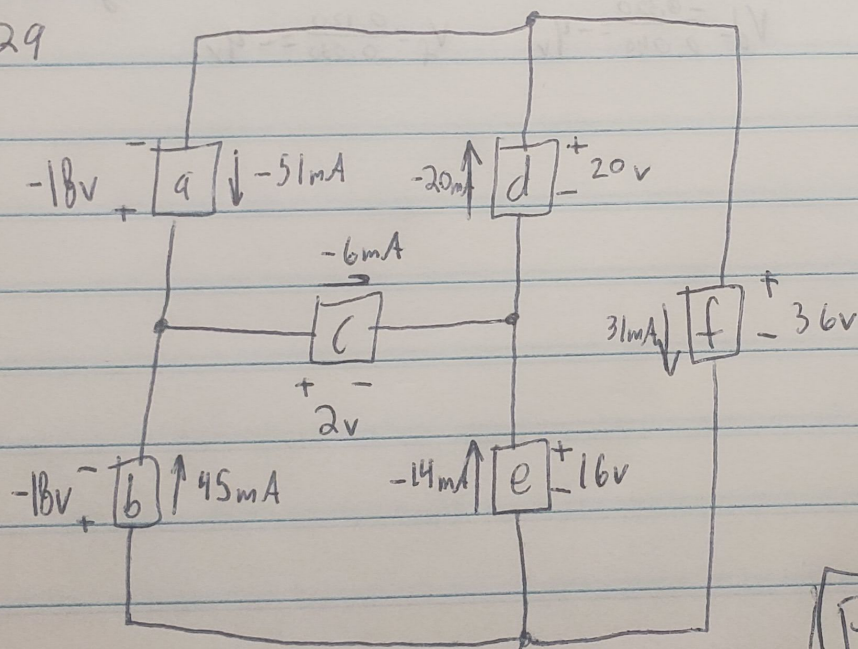 29
-18v - + a ↓ -51mA
-20mA ↑ d + - 20v
-6mA →
c
+ -
2v
31mA ↓ f + - 36v
-18v - + b ↑ 45mA
-14mA ↑ e + - 16v